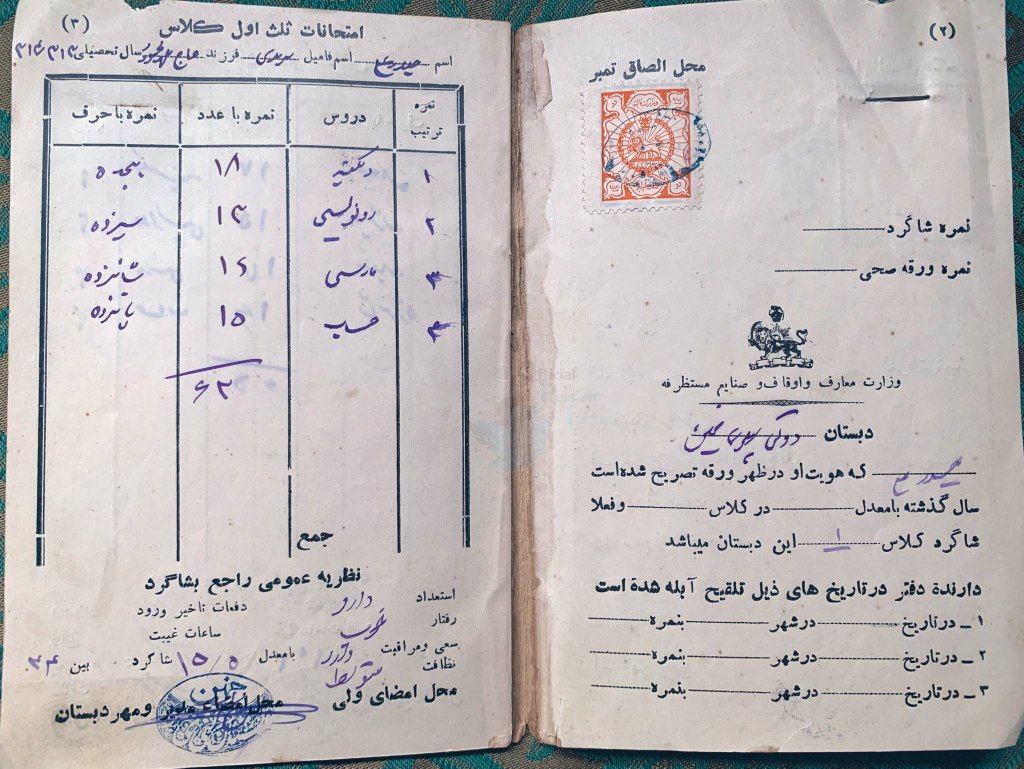 (۲)
محل الصاق تمبر
نمره شاگرد
نمره ورقه صحی
وزارت معارف و اوقاف و صنایع مستظرفه
دبستان
که هویت او در ظهر ورقه تصریح شده است
سال گذشته بامعدل در کلاس و فعلا
شاگرد کلاس ۱ این دبستان میباشد
دارندهٔ دفتر در تاریخ های ذیل تلقیح آبله شده است
۱ ـ در تاریخ در شهر بنمره
۲ ـ در تاریخ در شهر بنمره
۳ ـ در تاریخ در شهر بنمره
(۳)
امتحانات ثلث اول کلاس
اسم اسم فامیل فرزند حاج سال تحصیلی
نمره ترتیب دروس نمره با عدد نمره با حرف
۱ دیکته ۱۸ هیجده
۲ رونویسی ۱۳ سیزده
۳ فارسی ۱۶ شانزده
۴ حساب ۱۵ پانزده
۶۲
جمع
نظریه عمومی راجع بشاگرد
استعداد دارد دفعات تاخیر ورود
رفتار خوب ساعات غیبت
سعی و مراقبت دارد بامعدل ۱۵/۵ شاگرد بین ۳۴
نظافت متوسط
محل امضای ولی محل امضاء مدیر و مهر دبستان